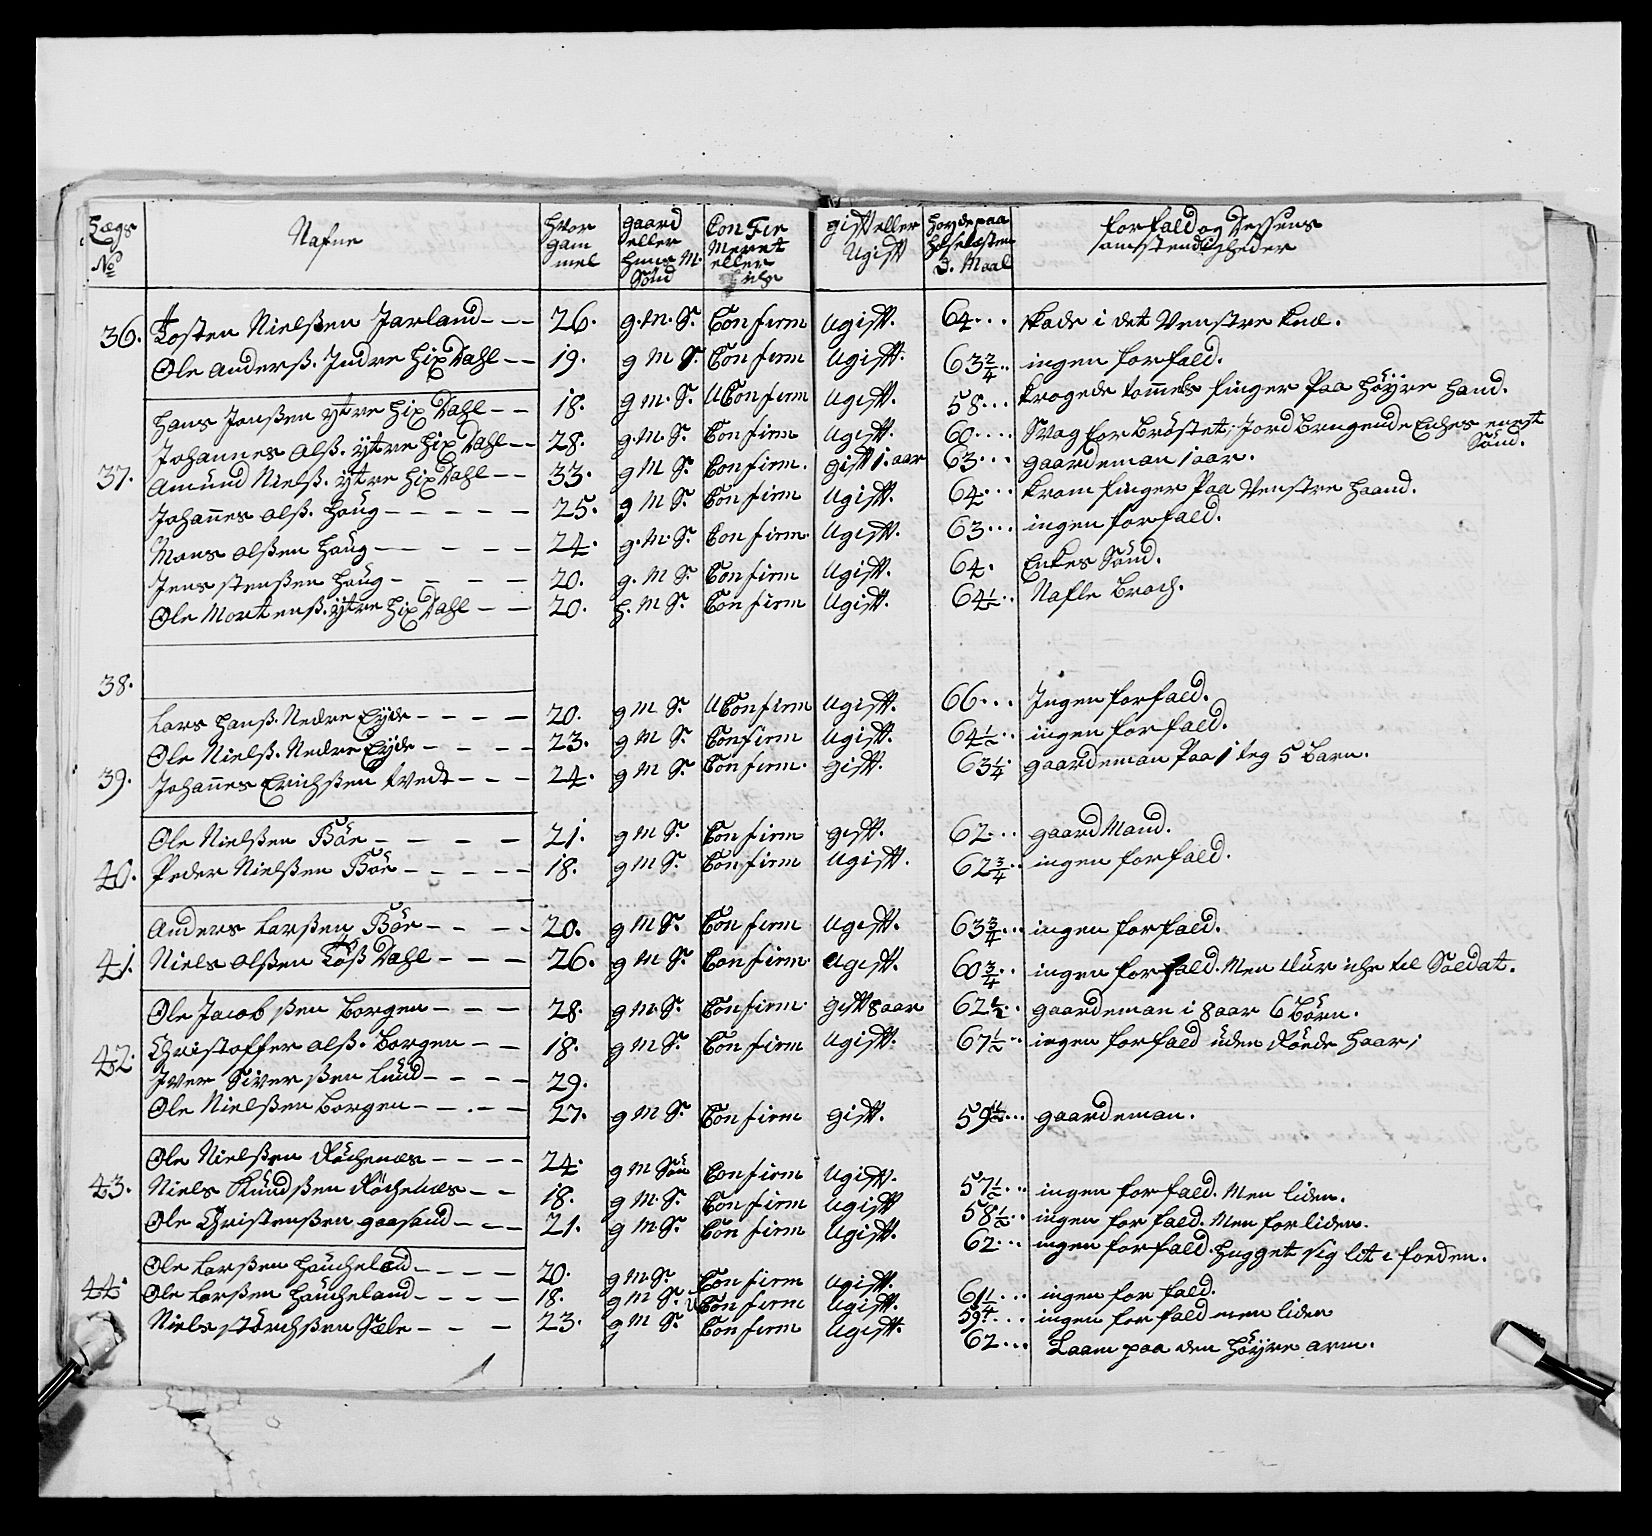 Lægs No | Nafne | Hvor gam mel | gaard eller huus M. Sönd | Con Fir Meret eller | gist eller Ugist | Høyde paa hoselæsten d. Maal | Forfald og Dessens omstendigheder
36. Tosten Nielßen Jarland --- 26. g. m. S. Confirm Ugist. 64... skade i det Venstre knæ.
Ole Anderß. Indre HixDahl -- 19. g M S. Confirm Ugist. 63 2/4.. ingen forfald.
Hans Jonßen ytre HixDahl -- 18. g m. S. UConfirm Ugist. 58... krogede tommels finger Paa Høyre Hand.
Johannes Olß. ytre HixDahl -- 28. g. M. S. Confirm Ugist. 60.... Svag for Bröstet, Jord Brugende Enches eneste Sönd.
37. Amund Nielß. ytre HixDahl -- 33. g M S. Confirm. gist 1. aar 63... gaardeman 1 aar.
Johannes Olß. Houg ----- 25. g M S. Confirm Ugist. 64... kram finger Paa Venstre Haand.
Mons Olßen Houg ----- 24. g. M. S. Confirm. Ugist. 63... ingen forfald.
Jens stenßen Houg ---- 20. g. M S. Confirm Ugist. 64. Enkes Sönd.
Ole Mortenß. ytre HixDahl -- 20. H. M S. Confirm Ugist. 64 1/2.. Nafle Brock.
38.
Lars Hanß. Nedre Eyde ---- 20. g M S. UConfirm Ugist. 66... Ingen forfald.
Ole Nielß. Nedre Eyde ---- 23. g M S. Confirm Ugist. 64 1/2.. ingen forfald.
39. Johannes Erichßen tvedt --- 24. g M S. Confirm. gist. 63 1/4. gaardeman Paa 1 leg 5 Barn.
Ole Nielßen Böe ---- 21. g M S. Confirm gist. 62... gaard Mand.
40. Peder Nielßen Böe ----- 18. g M S. Confirm Ugist. 62 3/4.. ingen forfald.
Anders Larßen Böe ---- 20. g M S. Confirm Ugist. 63 3/4... ingen forfald.
41. Niels Olßen TößDahl --- 26. g M S. Confirm. Ugist. 60 3/4.. ingen forfald. Men dur iche til Soldat.
Ole Jacobßen Borgen --- 28. g M. S. Confirm. gist 8 aar 62 1/2.. gaardeman i 8 aar 6 Börn.
42. Christoffer Olß. Borgen -- 18. g M S. Confirm Ugist. 67 1/2.. ingen forfald uden Röede Haar;
Iver Siverßen Lund ---- 29.
Ole Nielßen Borgen ---- 27. g M S. Confirm gist. 59 1/2... gaardeman.
Ole Nielßen Röchenæs ---- 24. g M Sön Confirm Ugist. 57 1/2... ingen forfald. Men liden.
43. Niels Knudßen Röchenæs -- 18. g M. S. Confirm Ugist 58 1/2.. ingen forfald. Men for liden.
Ole Christenßen gaasand --- 21. g M S. Confirm Ugist. 62... ingen forfald. Hugget sig lit i foeden.
Ole Larßen Haucheland ---- 20. g M. S. Confirm Ugist. 61 1/4... ingen forfald.
44. Ole Larßen Haucheland ---- 18. g M S. UConfirm Ugist. 59 1/4... ingen forfald men liden
Niels störchßen Sæle --- 23. g M S. Confirm Ugist. 62... Laam paa den Høyre arm.